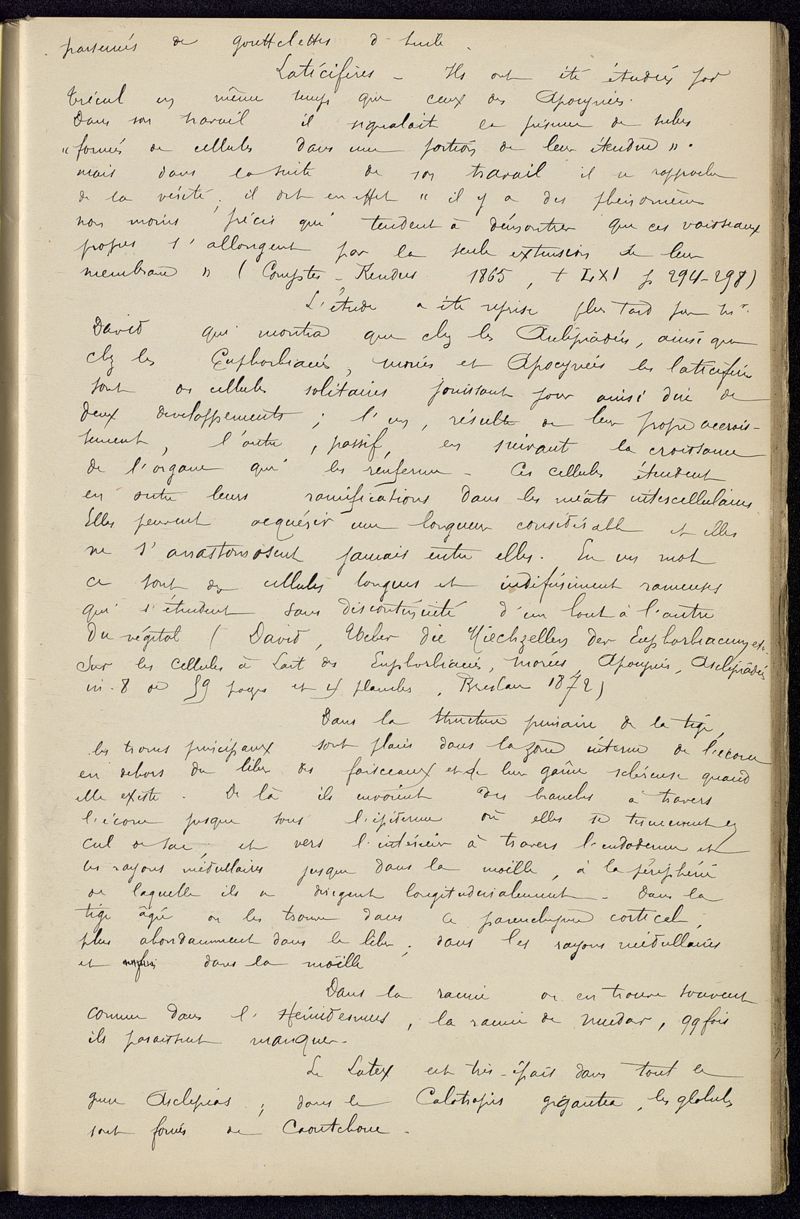 parsemés de gouttelettes d'huile.
Laticifères - Ils ont été étudiés par
Trécul en même temps que ceux des Apocynées.
Dans son travail il signalait la présence de tubes
"formés de cellules dans une portion de leur étendue".
mais dans la suite de son travail il se rapproche
de la vérité, il dit en effet "il y a des phénomènes
non moins précis qui tendent à démontrer que ces vaisseaux
propres s'allongent par la seule extension de leur
membrane" (Comptes-Rendus 1865, t LXI p 294-298)
L'étude a été reprise plus tard par Mr.
David qui montra que chez les Asclépiadées, ainsi que
chez les Euphorbiacées, morées et Apocynées les laticifères
sont des cellules solitaires jouissant pour ainsi dire de
deux developpements; l'un, résulte de leur propre accrois-
sement, l'autre, passif, en suivant la croissance
de l'organe qui les renferme - Ces cellules étendent
en outre leurs ramifications dans les méats intercellulaires
Elles peuvent acquérir une longueur considérable et elles
ne s'anastomosent jamais entre elles. En un mot
ce sont des cellules longues et indéfiniment rameuses
qui s'étendent sans discontinuité d'un bout à l'autre
du végétal (David, Ueber die Milchzellen der Euphorbiaceen etc.
Sur les cellules à Lait des Euphorbiacées, morées, Apocynées, Asclépiadées
in-8 de 59 pages et 4 planches, Breslau 1872)
Dans la structure primaire de la tige,
les troncs principaux sont placés dans la zone interne de l'écorce
en dehors du liber des faisceaux et de leur gaîne scléreuse quand
elle existe. De là ils envoient des branches à travers
l'écorce jusque sous l'épiderme où elles se terminent en
cul de sac, et vers l'intérieur à travers l'endoderme et
les rayons médullaires jusque dans la moëlle, à la périphérie
de laquelle ils se dirigent longitudinalement - Dans la
tige âgée on les trouve dans le parenchyme cortical,
plus abondamment dans le liber; dans les rayons médullaires
et enfin dans la moëlle
Dans la racine on en trouve souvent
comme dans l'Hémidesmus, la racine de mudar, qqfois
ils paraissent manquer.
Le Latex est très-épais dans tout le
genre Asclepias; dans le Calotropis gigantea, les globules
sont formés de Caoutchouc.